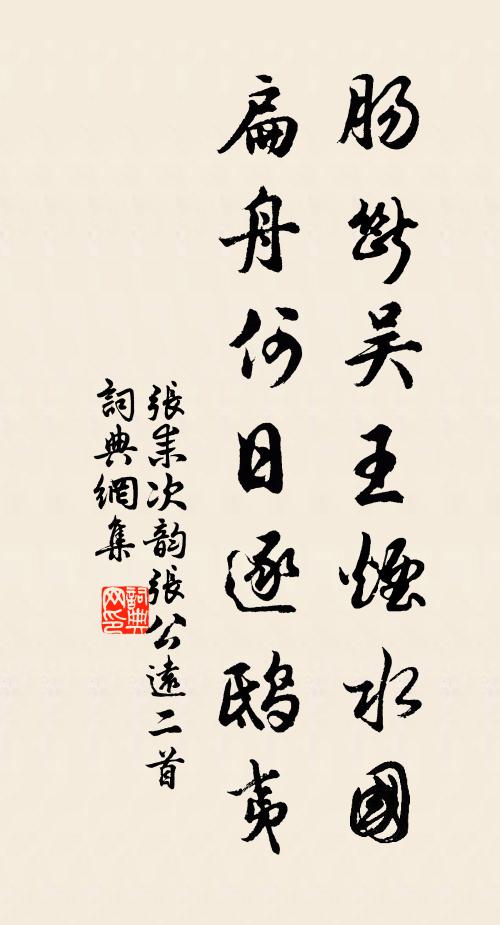 肠斷吴王煙水國
扁舟何日逐鸱夷
張耒次韵張公遠二首
詞典網集
詞典网印